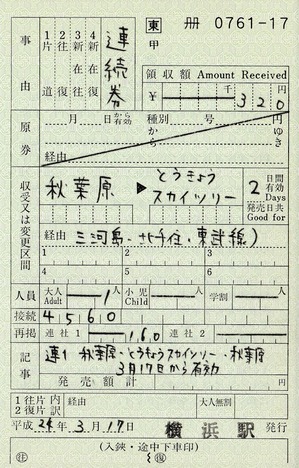 東 冊 0761-17
甲
事由
1片道
2往復
3新在往
4新在往復
連続券
領収額 Amount Received
¥ 千 320 円
原券
月 日から有効
種別 号
から ゆき
経由
収受又は変更区間
秋葉原 ▶ とうきょうスカイツリー
2 日間有効 Days
発売日共 Good for
経由 三河島・北千住・東武線)
1 2 3
4 5 6
人員 大人 Adult 1人 小児 Child 人 学割 人
接続 4560
再掲 連社1 160 連社2
記事
連1 秋葉原・とうきょうスカイツリー・秋葉原
3月17日から有効
発売額計
1往片内
2復片訳
経由 大人無割
平成 24年 3月 17日 横浜駅 発行
(入鋏・途中下車印)
往 復